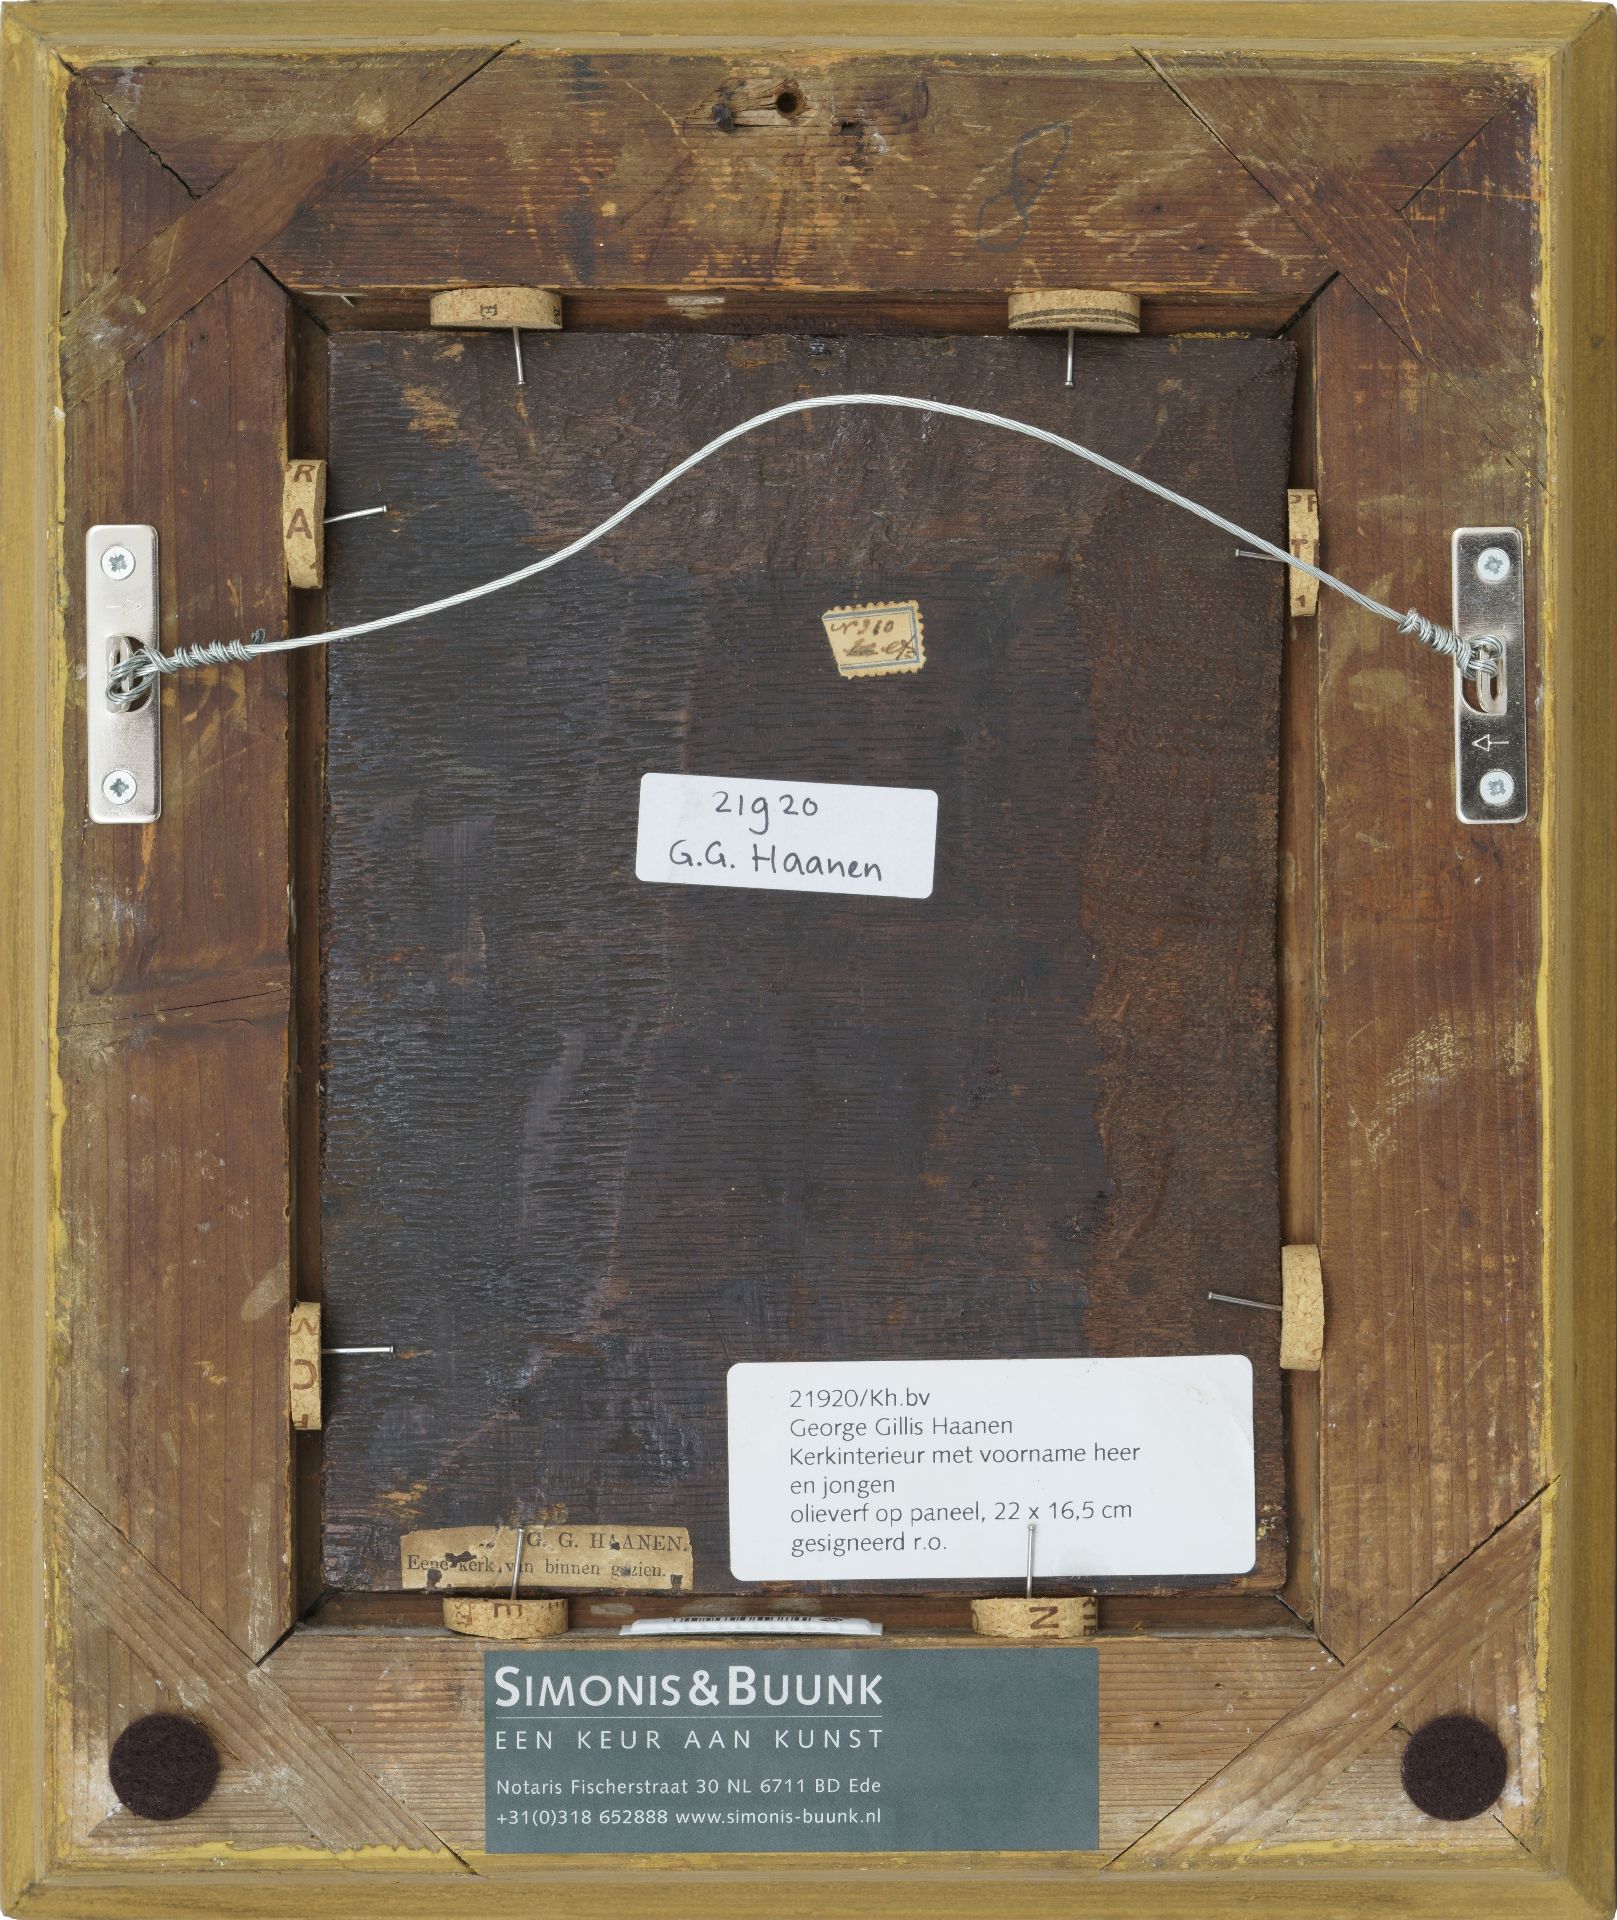 8
No 910
21920
G.G. Haanen
21920/Kh.bv
George Gillis Haanen
Kerkinterieur met voorname heer
en jongen
olieverf op paneel, 22 x 16,5 cm
gesigneerd r.o.
G. G. HAANEN.
Eene kerk van binnen gezien.
SIMONIS & BUUNK
EEN KEUR AAN KUNST
Notaris Fischerstraat 30 NL 6711 BD Ede
+31(0)318 652888 www.simonis-buunk.nl